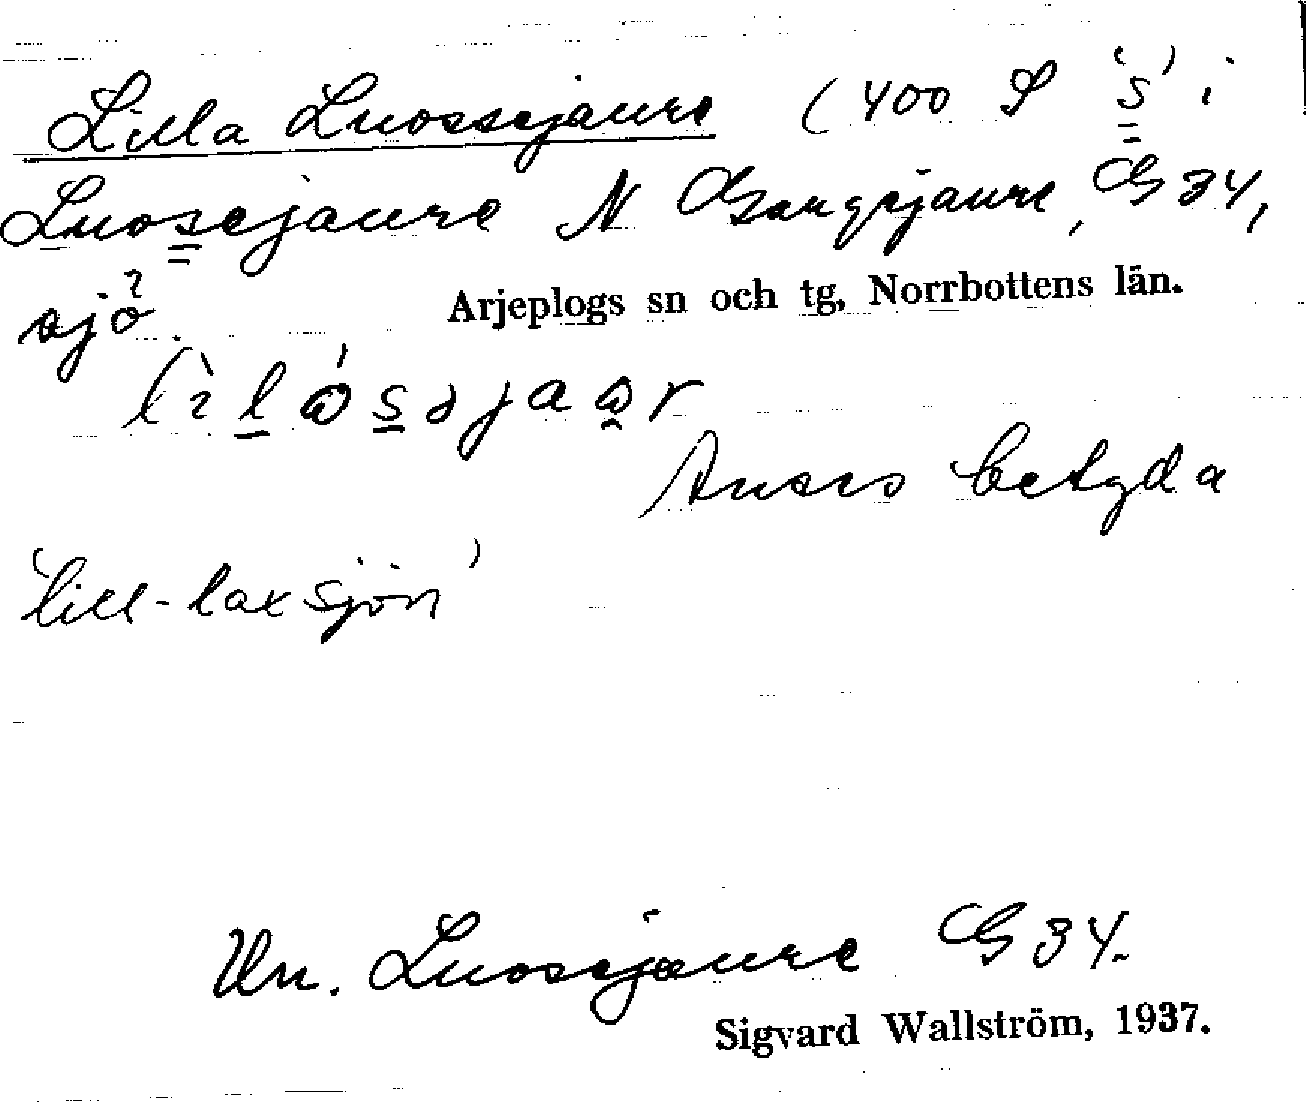 Lilla Luossejaure (400 S 's' i
Luosejaure N Gaugejaure, G 34,
sjö.
Arjeplogs sn och tg, Norrbottens län.
Anses betyda
'lill-laxsjön'
Un. Luosejaure G 34.
Sigvard Wallström, 1937.